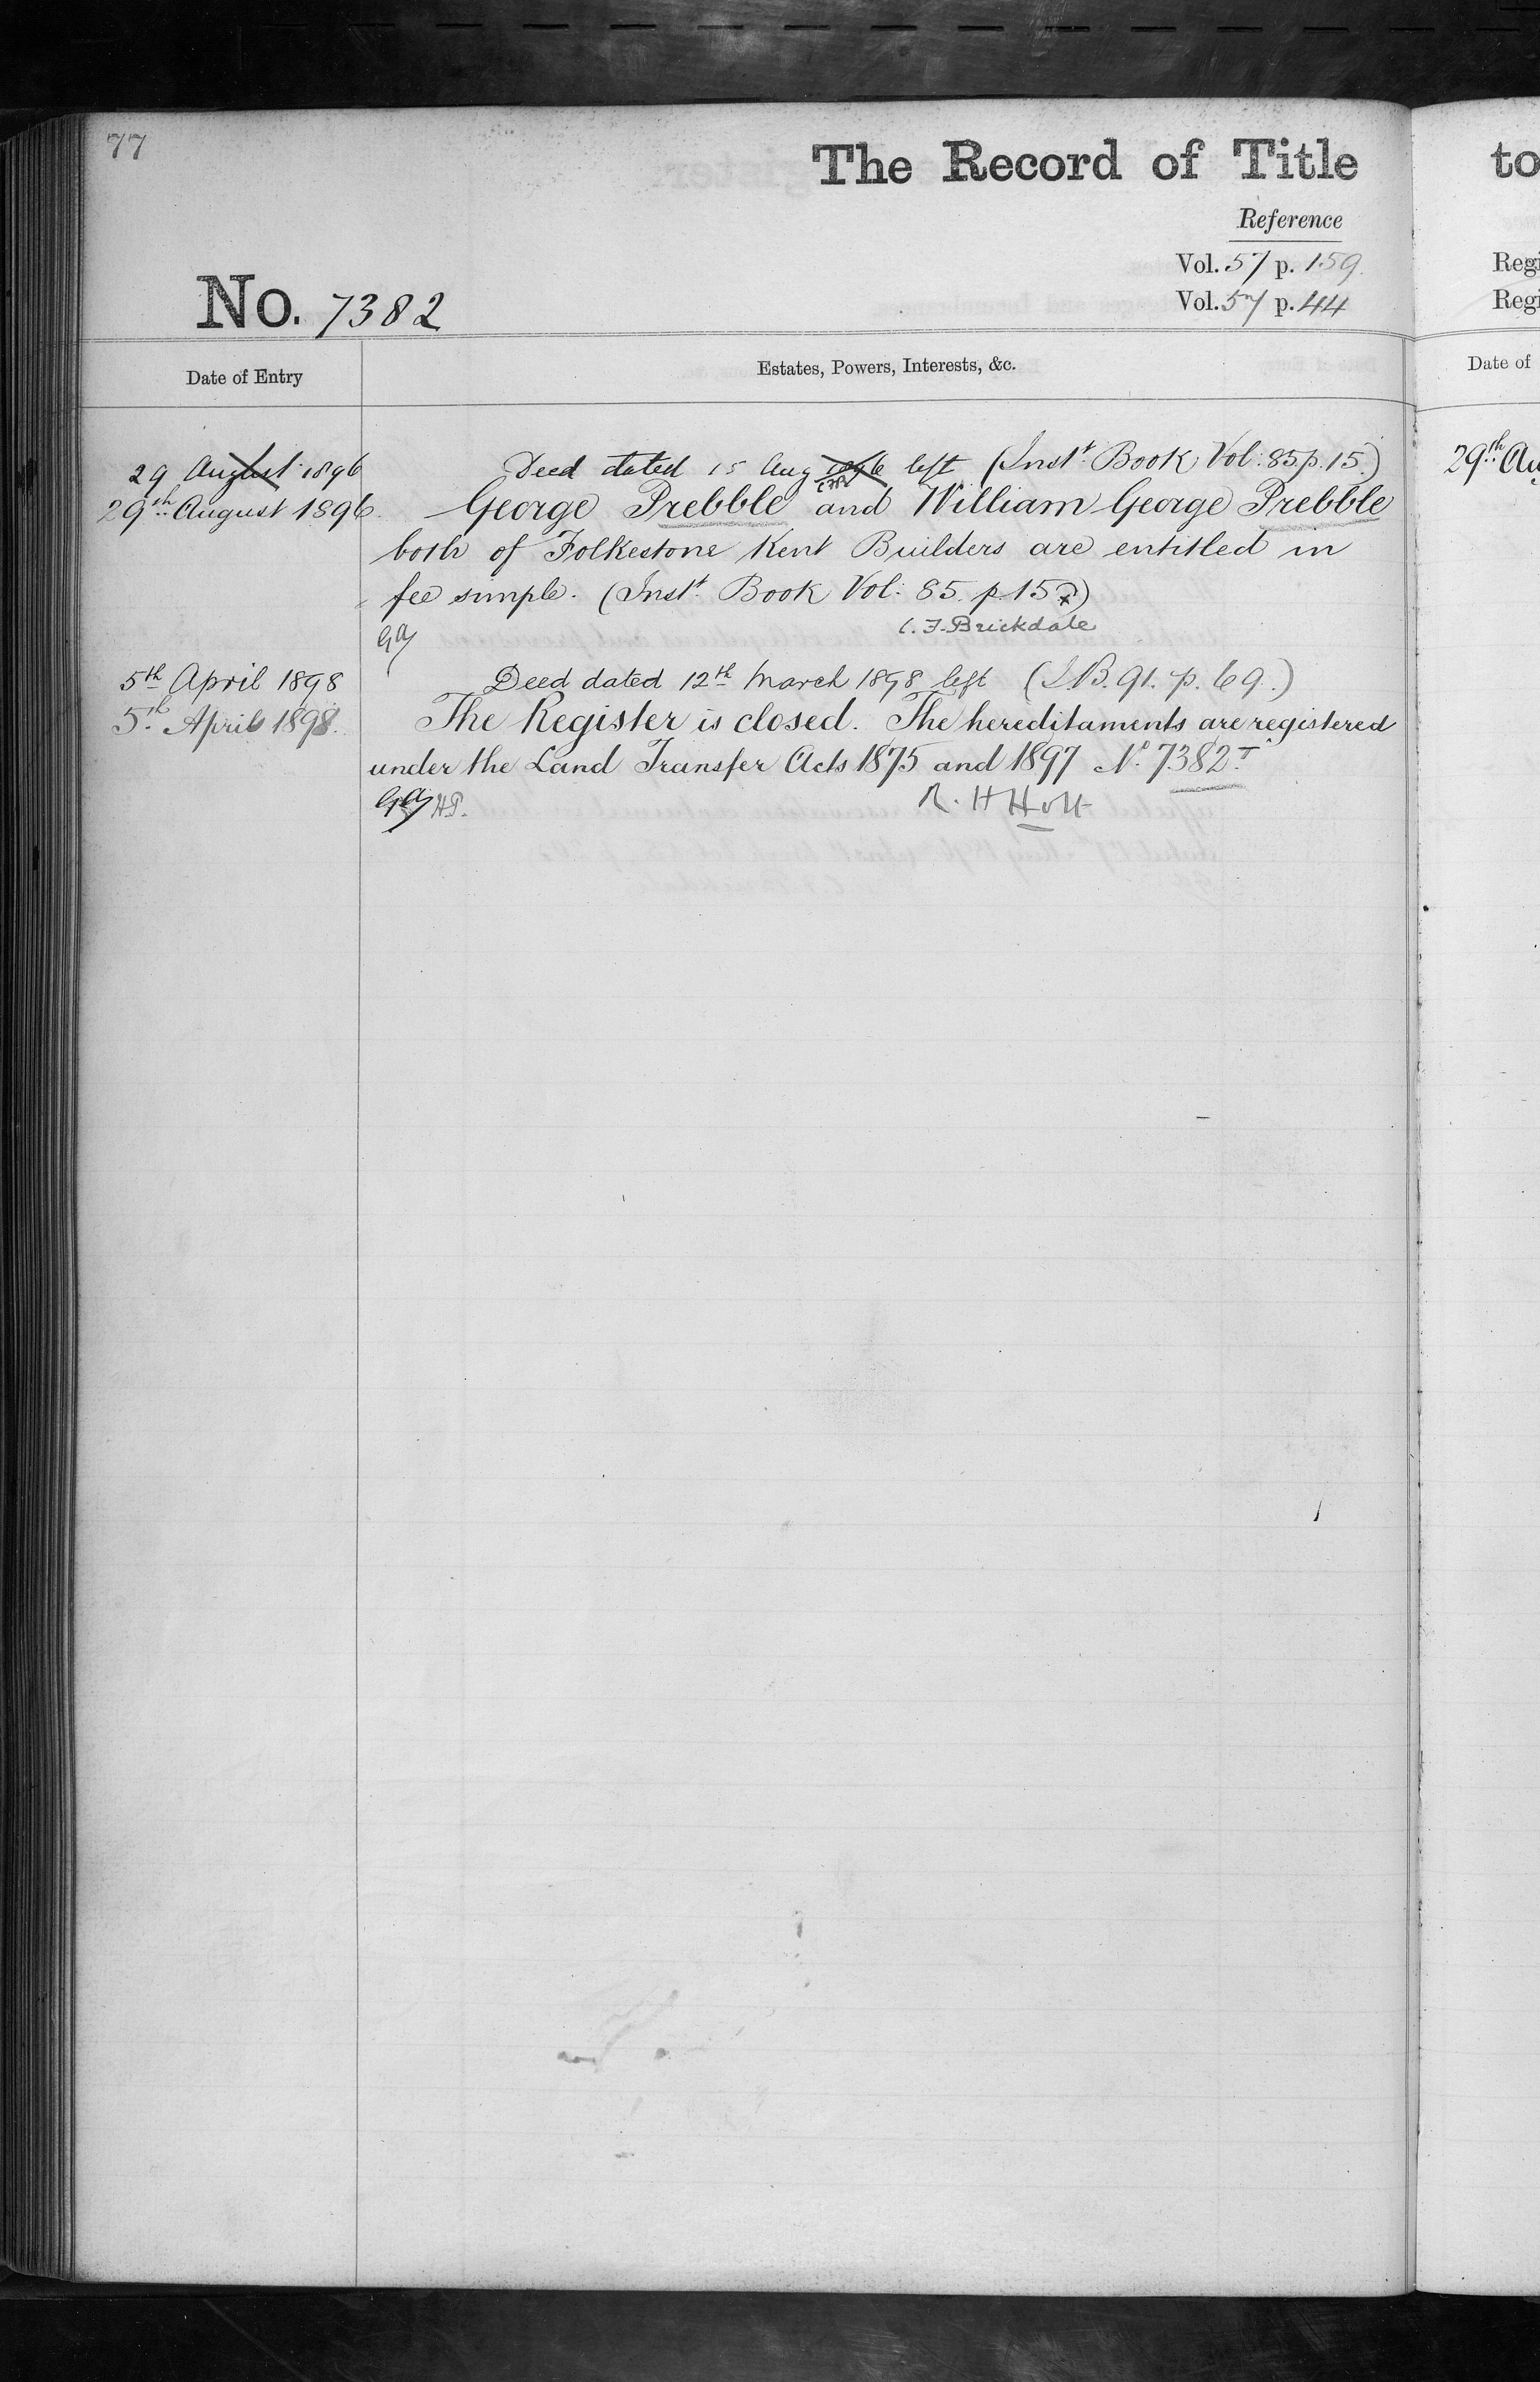 77
The Record of Title
Reference
Vol. 57 p. 159.
Vol. 57 p. 44
No. 7382
Date of Entry
Estates, Powers, Interests, &c.
29 August 1896
Deed dated 15 Aug 1896 left (Instt. Book Vol: 85. p. 15.)
29th August 1896.
George Prebble and William George Prebble
both of Folkestone Kent Builders are entitled in
fee simple. (Instt. Book Vol: 85. p. 15)
C. F. Brickdale
5th April 1898
Deed dated 12th March 1898 left (I.B. 91. p. 69.)
5th April 1898.
The Register is closed. The hereditaments are registered
under the Land Transfer Acts 1875 and 1897 No. 7382T.
HP.
R. H Holt
to
Regi
Regi
Date of
29th Au